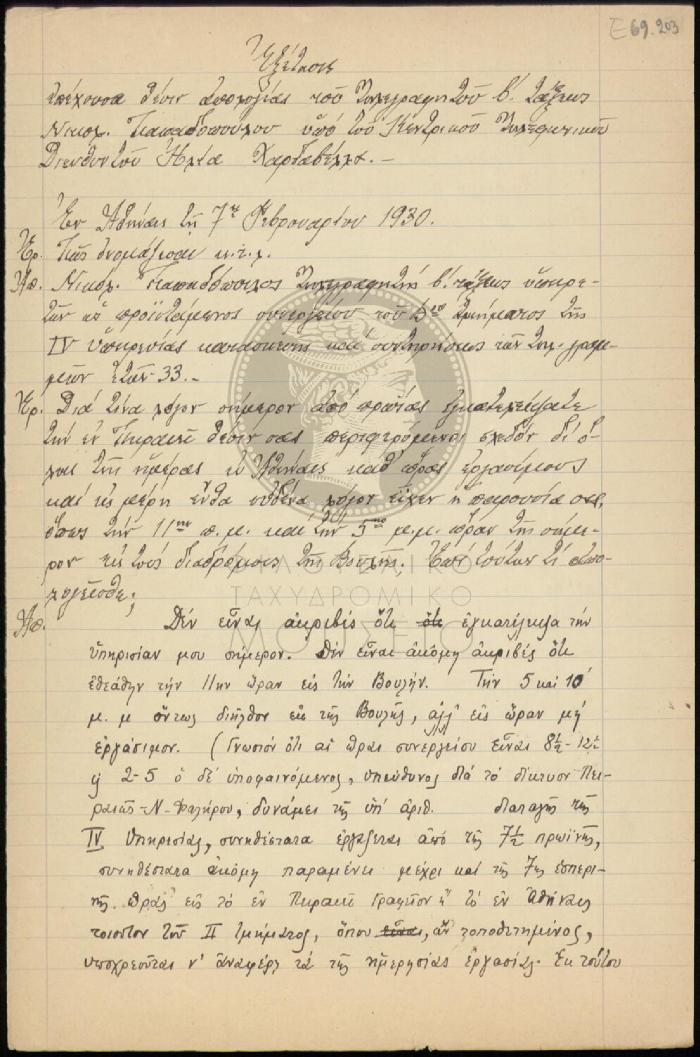 Ε 69.203
Ἐξέτασις
ἐπέχουσα θέσιν ἀπολογίας τοῦ Τηλεγραφητοῦ β΄. τάξεως
Νικολ. Παπαδοπούλου ὑπὸ τοῦ Κεντρικοῦ Τηλεφωνικοῦ
Διευθυντοῦ Ἠλία
Ἐν Ἀθήναις τῇ 7ῃ Φεβρουαρίου 1930.
Ἐρ. Πῶς ὀνομάζεσαι κ.τ.λ.
Ἀπ. Νικολ. Παπαδόπουλος Τηλεγραφητὴς β΄. τάξεως ὑπηρε-
τῶν ὡς προϊστάμενος συνεργείου τοῦ τμήματος τῆς
IV ὑπηρεσίας κατασκευῆς καὶ συντηρήσεως τῶν τηλ. γραμ-
μῶν ἐτῶν 33.-
Ἐρ. Διὰ τίνα λόγον σήμερον ἀπὸ πρωΐας ἐγκατελείψατε
τὴν ἐν Πειραιεῖ θέσιν σας περιφερόμενος σχεδὸν δι' ὅ-
λης τῆς ἡμέρας ἐν Ἀθήναις καθ' ὥρας ἐργασίμους
καὶ εἰς μέρη ἔνθα οὐδένα λόγον εἶχεν ἡ παρουσία σας,
ὅπως τὴν 11ην π.μ. καὶ τὴν 5ην μ.μ. ὥραν τῆς σήμε-
ρον εἰς τοὺς διαδρόμους τῆς Βουλῆς. Ἐπὶ τούτων τί ἀπο-
λογεῖσθε;
Ἀπ. Δὲν εἶναι ἀκριβὲς ὅτι ὅτι ἐγκατέλειψα τὴν
ὑπηρεσίαν μου σήμερον. Δὲν εἶναι ἀκόμη ἀκριβὲς ὅτι
ἐθεάθην τὴν 11ην ὥραν εἰς τὴν Βουλήν. Τὴν 5 καὶ 10'
μ.μ ὄντως διῆλθον ἐκ τῆς Βουλῆς, ἀλλ' εἰς ὥραν μὴ
ἐργάσιμον. (Γνωστὸν ὅτι αἱ ὧραι συνεργείου εἶναι 8½-12½
ἢ 2-5 ὁ δὲ ὑποφαινόμενος, ὑπεύθυνος διὰ τὸ δίκτυον Πει-
ραιῶς-Ν-Φαλήρου, δυνάμει τῆς ὑπ' ἀριθ. διαταγῆς τῆς
IV Ὑπηρεσίας, συνηθέστατα ἐργάζεται ἀπὸ τῆς 7½ πρωϊνῆς,
συνηθέστατα ἀκόμη παραμένει μέχρι καὶ τῆς 7ης ἑσπερι-
νῆς ὥρας εἰς τὸ ἐν Πειραιεῖ Γραφεῖον ἢ τὸ ἐν Ἀθήναις
τοιοῦτον τοῦ II τμήματος, ὅπου εἶναι, ἂν τοποθετημένος,
ὑποχρεοῦται ν' ἀναφέρῃ τὰ τῆς ἡμερησίας ἐργασίας. Ἐκ τούτου
ΦΙΛΟΤΕΛΙΚΟ
ΤΑΧΥΔΡΟΜΙΚΟ
ΜΟΥΣΕΙΟ